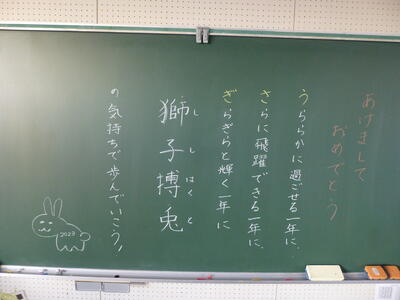 あけまして
おめでとう
うららかに過ごせる一年に、
さらに飛躍できる一年に、
ぎらぎらと輝く一年に
獅子搏兎
ししはくと
の気持ちで歩んでいこう！
2023